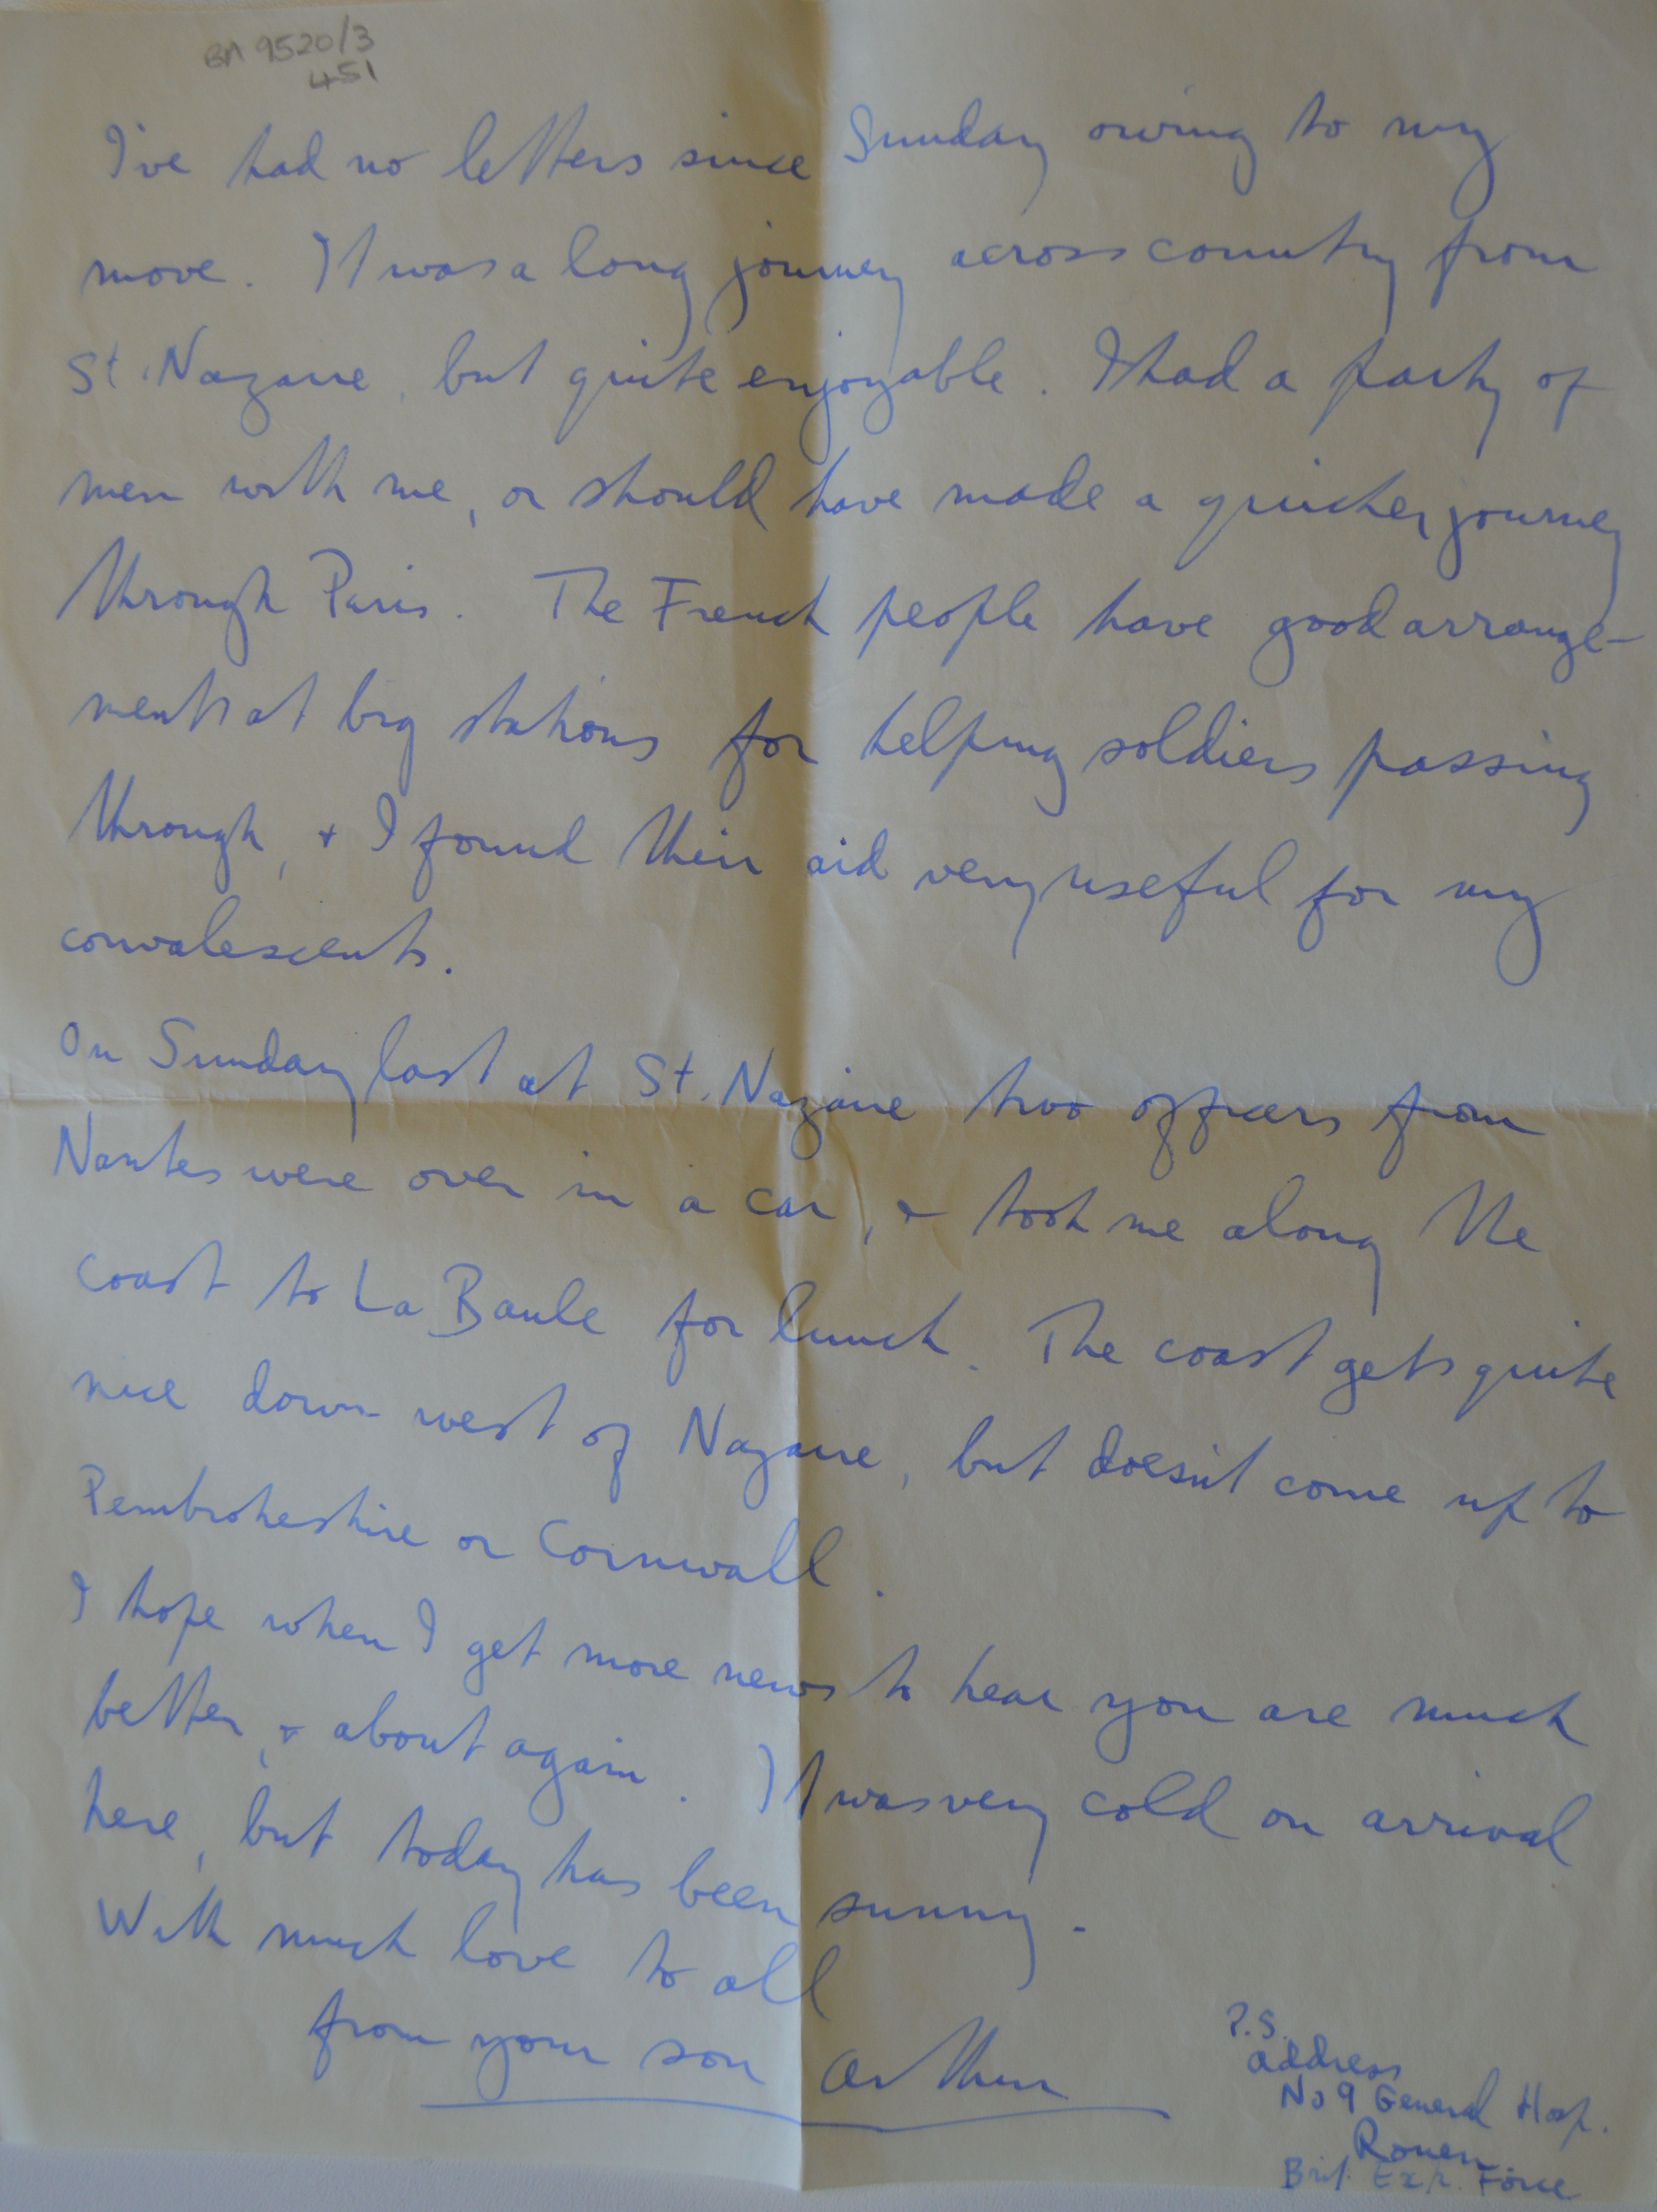 BA 9520/3
451
I've had no letters since Sunday owing to my
move. It was a long journey across country from
St. Nazaire, but quite enjoyable. I had a party of
men with me, or should have made a quicker journey
through Paris. The French people have good arrange-
ments at big stations for helping soldiers passing
through, + I found their aid very useful for my
convalescents.
On Sunday last at St. Nazaire two officers from
Nantes were over in a car, + took me along the
coast to La Baule for lunch. The coast gets quite
nice down west of Nazaire, but doesn't come up to
Pembrokeshire or Cornwall.
I hope when I get more news to hear you are much
better, + about again. It was very cold on arrival
here, but today has been sunny.
With much love to all
from your son Arthur
P.S.
address
No 9 General Hosp.
Rouen
Brit. Exp. Force